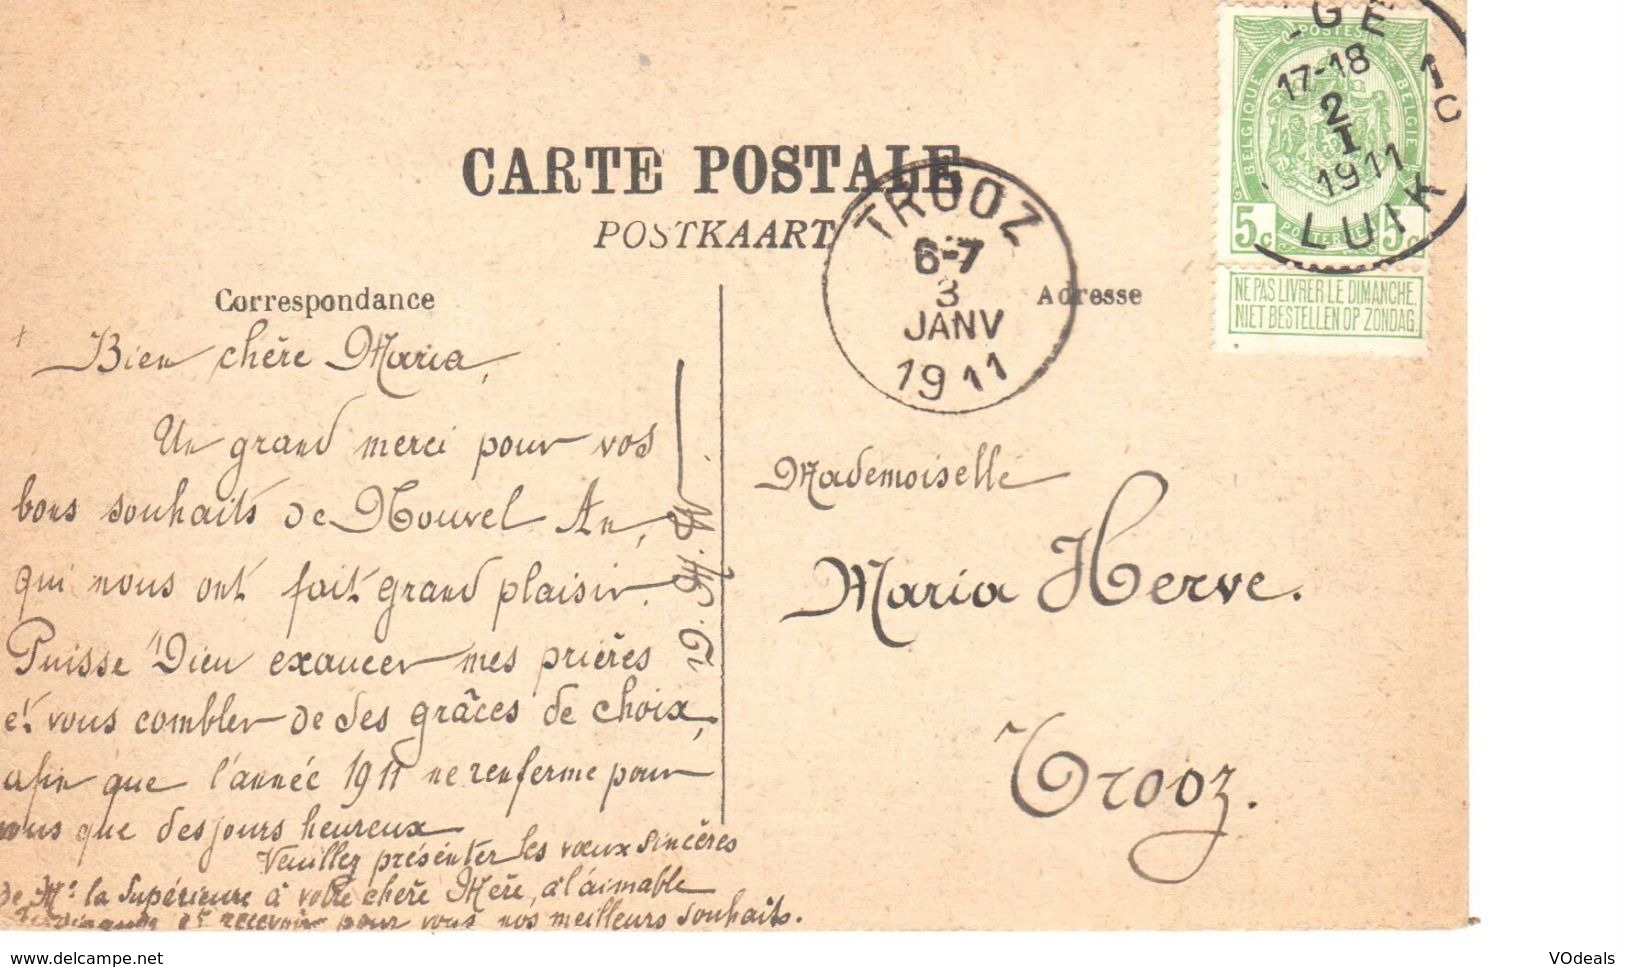 CARTE POSTALE
POSTKAART
Correspondance
Adresse
Bien chère Maria,
Un grand merci pour vos
bons souhaits de Nouvel An,
qui nous ont fait grand plaisir.
Puisse Dieu exaucer mes prières
et vous combler de ses grâces de choix,
afin que l'année 1911 ne renferme pour
vous que des jours heureux
Veuillez présenter les vœux sincères
de Me la Supérieure à votre chère Mère, à l'aimable
et recevoir pour vous nos meilleurs souhaits.
Mademoiselle
Maria Herve.
Trooz.
TROOZ
6-7
3
JANV
1911
GE
17-18
2
I
1911
1C
LUIK
POSTES
BELGIQUE
BELGIE
POSTERIJEN
5c 5c
NE PAS LIVRER LE DIMANCHE
NIET BESTELLEN OP ZONDAG
delcampe.net
VOdeals